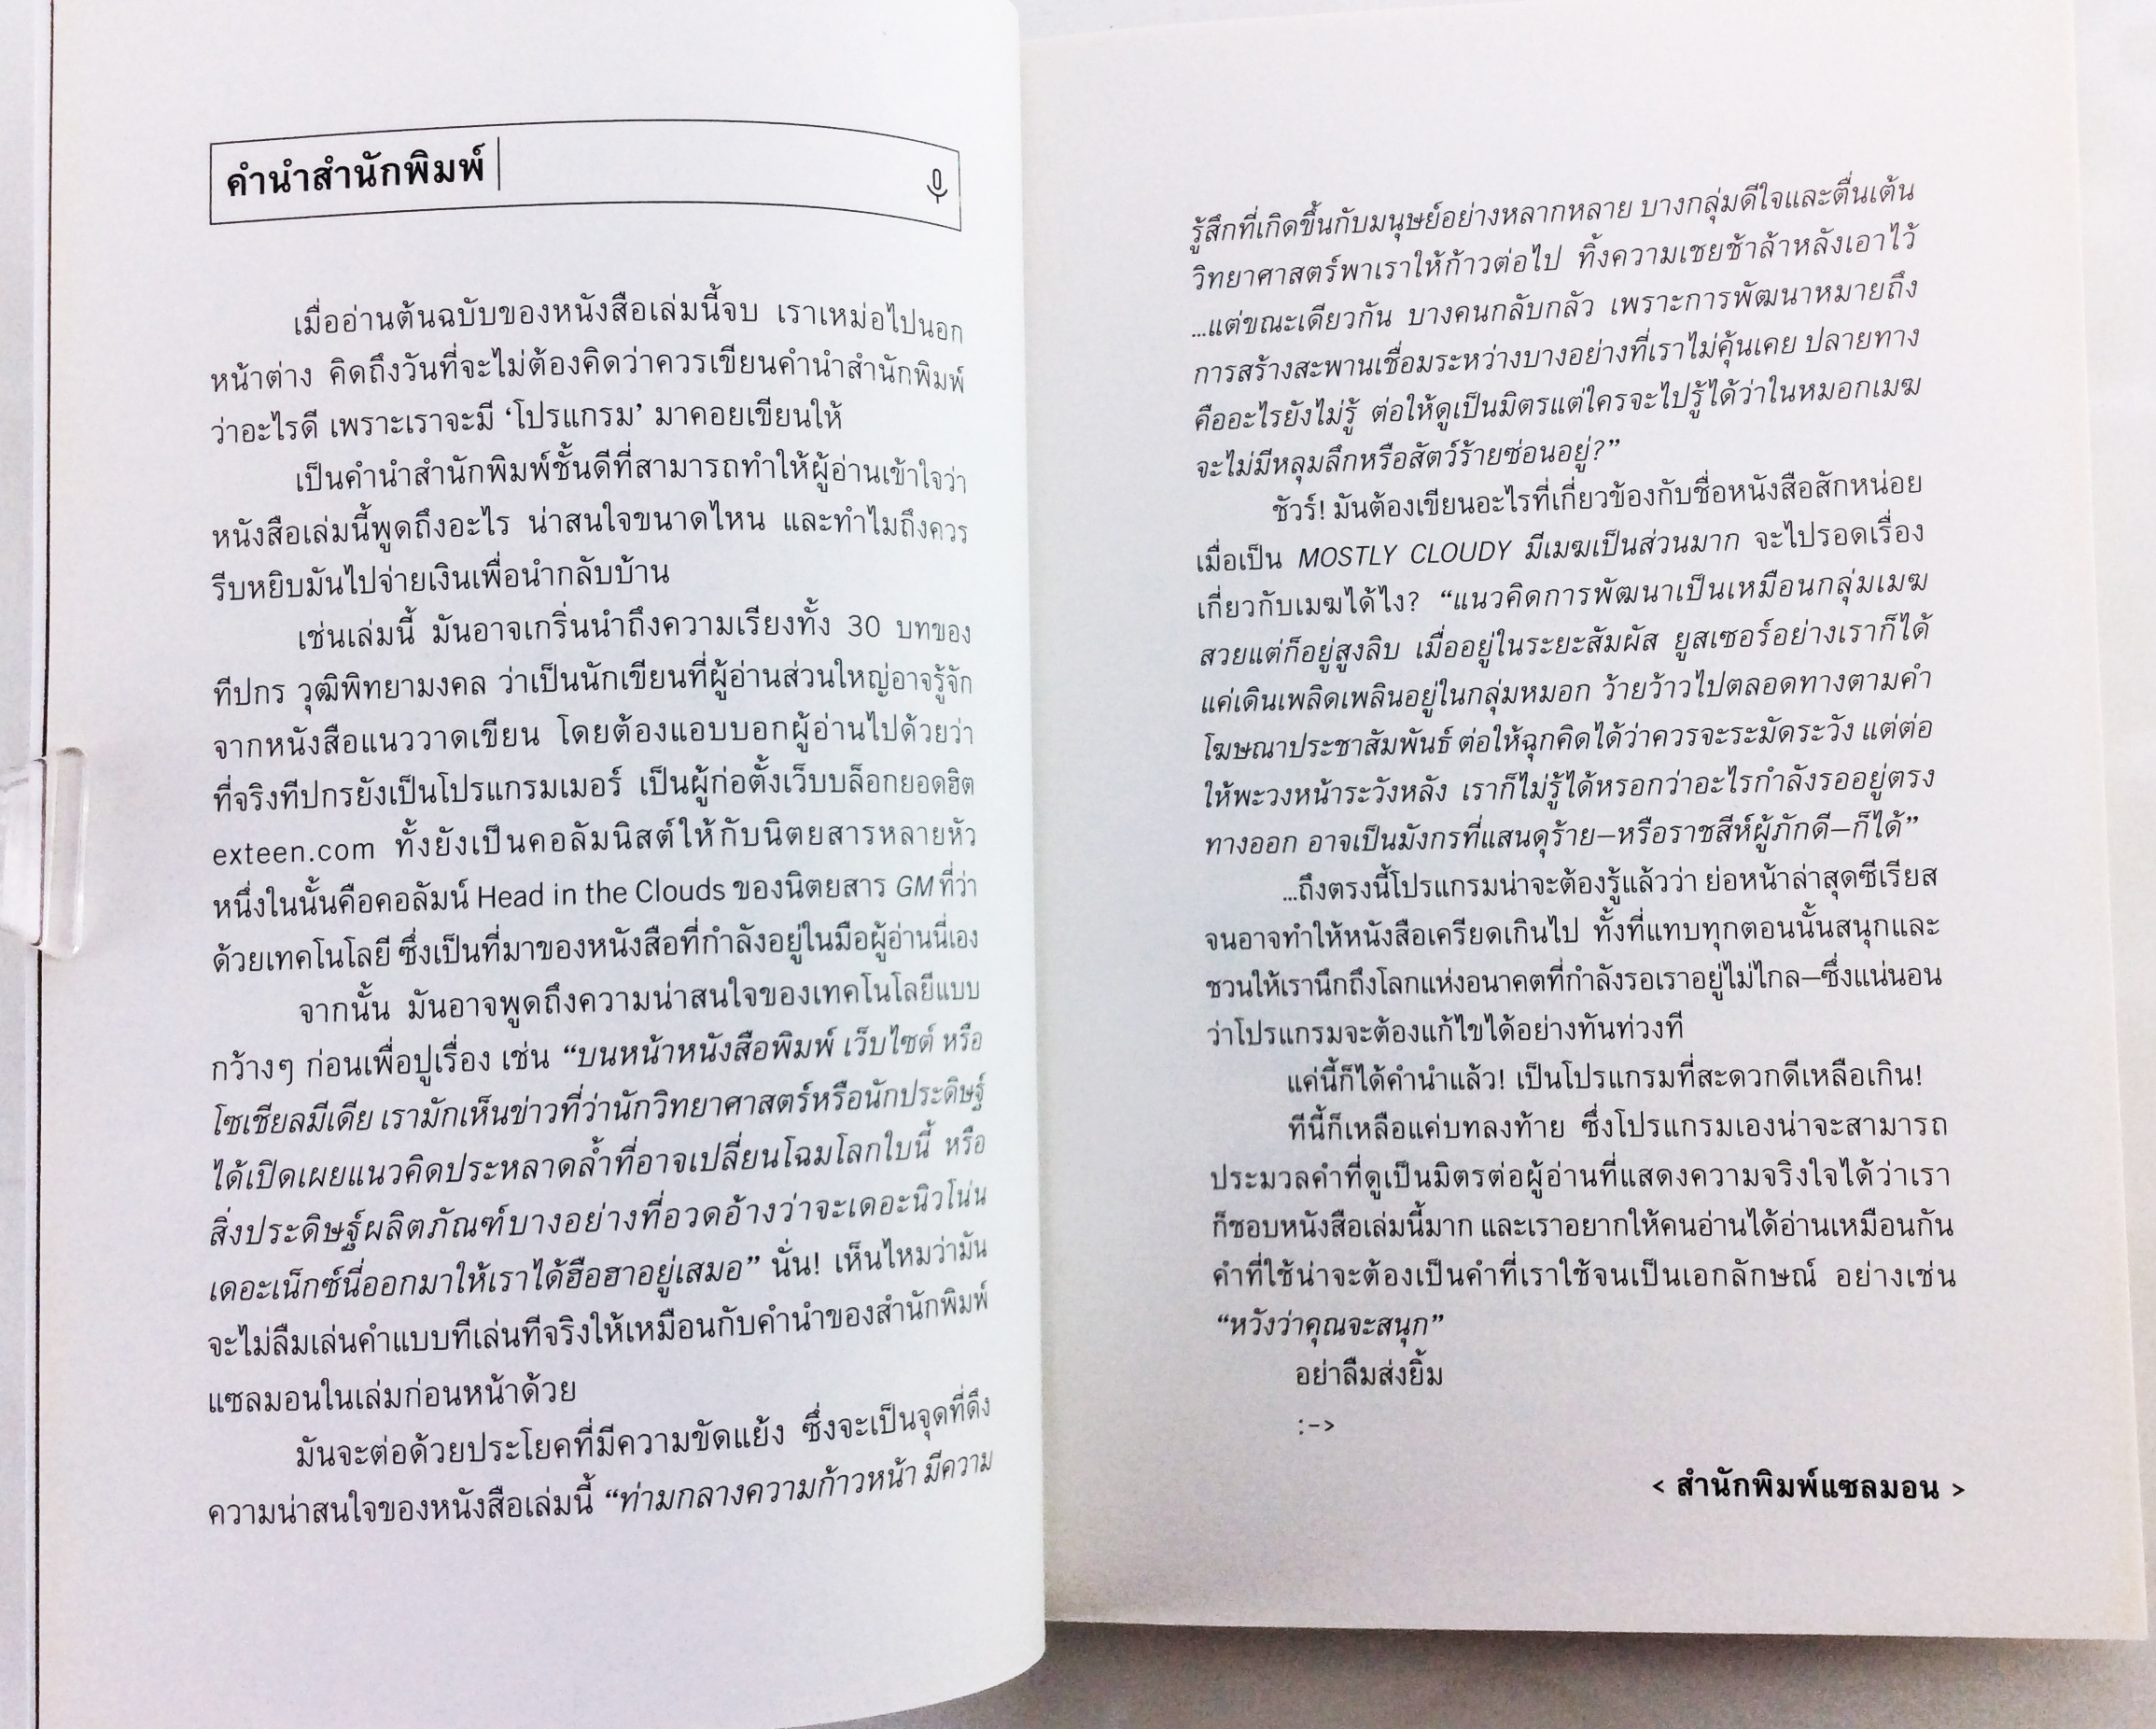 คำนำสำนักพิมพ์
เมื่ออ่านต้นฉบับของหนังสือเล่มนี้จบ เราเหม่อไปนอก
หน้าต่าง คิดถึงวันที่จะไม่ต้องคิดว่าควรเขียนคำนำสำนักพิมพ์
ว่าอะไรดี เพราะเราจะมี ‘โปรแกรม’ มาคอยเขียนให้
เป็นคำนำสำนักพิมพ์ชั้นดีที่สามารถทำให้ผู้อ่านเข้าใจว่า
หนังสือเล่มนี้พูดถึงอะไร น่าสนใจขนาดไหน และทำไมถึงควร
รีบหยิบมันไปจ่ายเงินเพื่อนำกลับบ้าน
เช่นเล่มนี้ มันอาจเกริ่นนำถึงความเรียงทั้ง 30 บทของ
ทีปกร วุฒิพิทยามงคล ว่าเป็นนักเขียนที่ผู้อ่านส่วนใหญ่อาจรู้จัก
จากหนังสือแนววาดเขียน โดยต้องแอบบอกผู้อ่านไปด้วยว่า
ที่จริงทีปกรยังเป็นโปรแกรมเมอร์ เป็นผู้ก่อตั้งเว็บบล็อกยอดฮิต
exteen.com ทั้งยังเป็นคอลัมนิสต์ให้กับนิตยสารหลายหัว
หนึ่งในนั้นคือคอลัมน์ Head in the Clouds ของนิตยสาร GM ที่ว่า
ด้วยเทคโนโลยี ซึ่งเป็นที่มาของหนังสือที่กำลังอยู่ในมือผู้อ่านนี่เอง
จากนั้น มันอาจพูดถึงความน่าสนใจของเทคโนโลยีแบบ
กว้างๆ ก่อนเพื่อปูเรื่อง เช่น “บนหน้าหนังสือพิมพ์ เว็บไซต์ หรือ
โซเชียลมีเดีย เรามักเห็นข่าวที่ว่านักวิทยาศาสตร์หรือนักประดิษฐ์
ได้เปิดเผยแนวคิดประหลาดล้ำที่อาจเปลี่ยนโฉมโลกใบนี้ หรือ
สิ่งประดิษฐ์ผลิตภัณฑ์บางอย่างที่อวดอ้างว่าจะเดอะนิวโน่น
เดอะเน็กซ์นี่ออกมาให้เราได้ฮือฮาอยู่เสมอ” นั่น! เห็นไหมว่ามัน
จะไม่ลืมเล่นคำแบบทีเล่นทีจริงให้เหมือนกับคำนำของสำนักพิมพ์
แซลมอนในเล่มก่อนหน้าด้วย
มันจะต่อด้วยประโยคที่มีความขัดแย้ง ซึ่งจะเป็นจุดที่ดึง
ความน่าสนใจของหนังสือเล่มนี้ “ท่ามกลางความก้าวหน้า มีความ
รู้สึกที่เกิดขึ้นกับมนุษย์อย่างหลากหลาย บางกลุ่มดีใจและตื่นเต้น
วิทยาศาสตร์พาเราให้ก้าวต่อไป ทิ้งความเชยช้าล้าหลังเอาไว้
...แต่ขณะเดียวกัน บางคนกลับกลัว เพราะการพัฒนาหมายถึง
การสร้างสะพานเชื่อมระหว่างบางอย่างที่เราไม่คุ้นเคย ปลายทาง
คืออะไรยังไม่รู้ ต่อให้ดูเป็นมิตรแต่ใครจะไปรู้ได้ว่าในหมอกเมฆ
จะไม่มีหลุมลึกหรือสัตว์ร้ายซ่อนอยู่?”
ชัวร์! มันต้องเขียนอะไรที่เกี่ยวข้องกับชื่อหนังสือสักหน่อย
เมื่อเป็น MOSTLY CLOUDY มีเมฆเป็นส่วนมาก จะไปรอดเรื่อง
เกี่ยวกับเมฆได้ไง? “แนวคิดการพัฒนาเป็นเหมือนกลุ่มเมฆ
สวยแต่ก็อยู่สูงลิบ เมื่ออยู่ในระยะสัมผัส ยูสเซอร์อย่างเราก็ได้
แค่เดินเพลิดเพลินอยู่ในกลุ่มหมอก ว้ายว้าวไปตลอดทางตามคำ
โฆษณาประชาสัมพันธ์ ต่อให้ฉุกคิดได้ว่าควรจะระมัดระวัง แต่ต่อ
ให้พะวงหน้าระวังหลัง เราก็ไม่รู้ได้หรอกว่าอะไรกำลังรออยู่ตรง
ทางออก อาจเป็นมังกรที่แสนดุร้าย—หรือราชสีห์ผู้ภักดี—ก็ได้”
...ถึงตรงนี้โปรแกรมน่าจะต้องรู้แล้วว่า ย่อหน้าล่าสุดซีเรียส
จนอาจทำให้หนังสือเครียดเกินไป ทั้งที่แทบทุกตอนนั้นสนุกและ
ชวนให้เรานึกถึงโลกแห่งอนาคตที่กำลังรอเราอยู่ไม่ไกล—ซึ่งแน่นอน
ว่าโปรแกรมจะต้องแก้ไขได้อย่างทันท่วงที
แค่นี้ก็ได้คำนำแล้ว! เป็นโปรแกรมที่สะดวกดีเหลือเกิน!
ทีนี้ก็เหลือแค่บทลงท้าย ซึ่งโปรแกรมเองน่าจะสามารถ
ประมวลคำที่ดูเป็นมิตรต่อผู้อ่านที่แสดงความจริงใจได้ว่าเรา
ก็ชอบหนังสือเล่มนี้มาก และเราอยากให้คนอ่านได้อ่านเหมือนกัน
คำที่ใช้น่าจะต้องเป็นคำที่เราใช้จนเป็นเอกลักษณ์ อย่างเช่น
“หวังว่าคุณจะสนุก”
อย่าลืมส่งยิ้ม
:->
< สำนักพิมพ์แซลมอน >